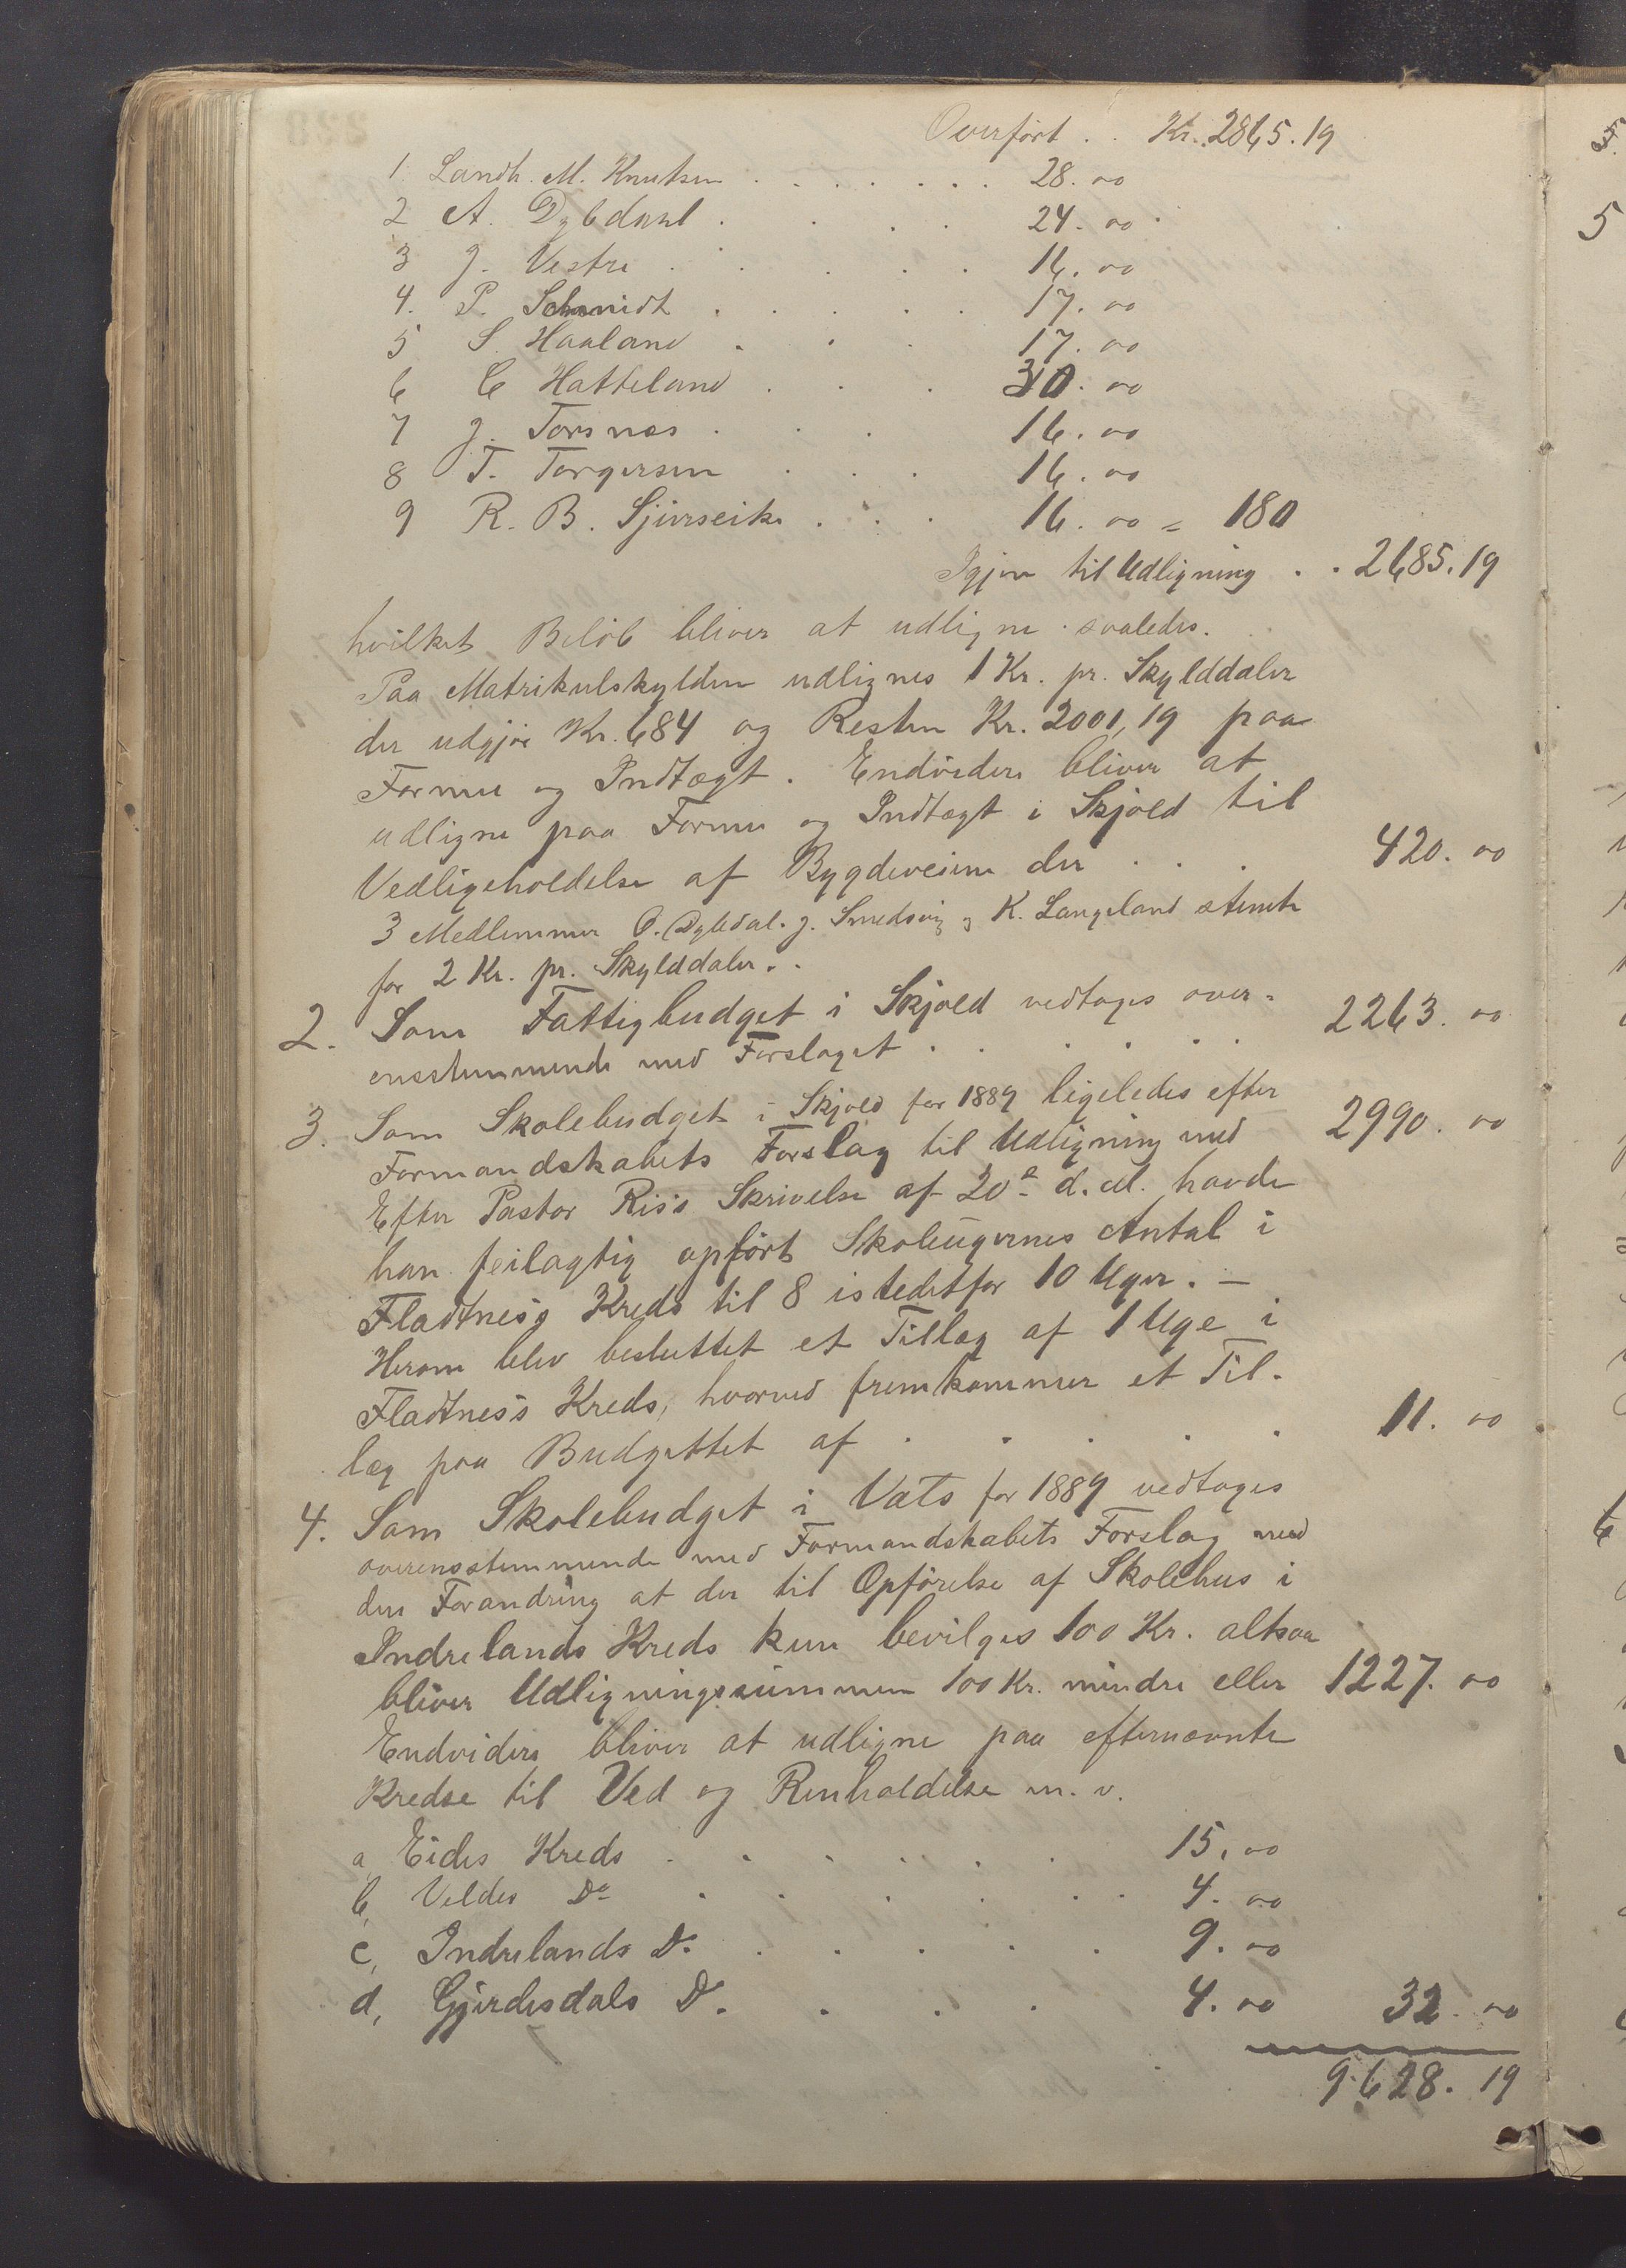 Overført . . Kr. 2865.19
1. Landh. M. Knutsen . . . . . . . 28.00
2 A. Dybdahl . . . . 24.00
3 J. Vestre . . . . . 16.00
4. P. Schmidt . . . . . 17.00
5 S. Haaland . . . 17.00
6 C Hatteland . . . 30.00
7 J. Torsnæs . . . 16.00
8 T. Torgersen . . . 16.00
9 R. B. Sjurseike . . . 16.00 = 180
Igjen til Udligning . . 2685.19
hvilket Beløb bliver at udligne saaledes.
Paa Matrikulskylden udlignes 1 Kr. pr. Skylddaler
der udgjør Kr. 684 og Resten Kr. 2001,19 paa
Formue og Indtægt. Endvidere bliver at
udligne paa Formue og Indtægt i Skjold til
Vedligeholdelse af Bygdeveiene der . . . 420.00
3 Medlemmer O. Dybdal. J. Smedsvig og K. Langeland stemte
for 2 Kr. pr. Skylddaler. .
2. Som Fattigbudget i Skjold vedtages over-
ensstemmende med Forslaget . . . . . . 2263.00
3. Som Skolebudget i Skjold for 1889 ligeledes efter
Formandskabets Forslag til Udligning med 2990.00
Efter Pastor Riis's Skrivelse af 20de d. M. havde
han feilagtig opført Skoleugernes Antal i
Fladtness Kreds til 8 istedetfor 10 Uger. —
Herom blev besluttet et Tillæg af 1 Uge i
Fladtness Kreds, hvorved fremkommer et Til-
læg paa Budgettet af . . . . . 11.00
4. Som Skolebudget i Vats for 1889 vedtages
overensstemmende med Formandskabets Forslag med
den Forandring at der til Opførelse af Skolehus i
Indrelands Kreds kun bevilges 100 Kr. altsaa
bliver Udligningssummen 100 Kr. mindre eller 1227.00
Endvidere bliver at udligne paa efternævnte
Kredse til Ved og Renholdelse m. v.
a, Eides Kreds . . . . . . 15.00
b, Veldes Do . . . . . . 4.00
c, Indrelands Do . . . . . 9.00
d, Gjerdesdals Do . . . . 4.00 32.00
9628.19